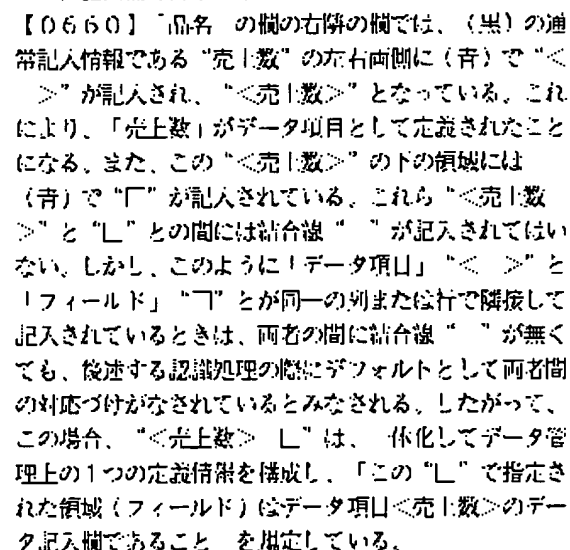 【0660】「品名 の欄の右隣の欄では、（黒）の通
常記入情報である“売上数”の左右両側に（青）で“＜
＞”が記入され、“＜売上数＞”となっている。これ
により、「売上数」がデータ項目として定義されたこと
になる。また、この“＜売上数＞”の下の領域には
（青）で“厂”が記入されている。これら“＜売上数
＞”と“∟”との間には結合線“ ”が記入されてはい
ない。しかし、このように「データ項目」“＜ ＞”と
「フィールド」“㇕”とが同一の列または行で隣接して
記入されているときは、両者の間に結合線“ ”が無く
ても、後述する認識処理の際にデフォルトとして両者間
の対応づけがなされているとみなされる。したがって、
この場合、“＜売上数＞ ∟”は、 体化してデータ管
理上の1つの定義情報を構成し、「この“∟”で指定さ
れた領域（フィールド）はデータ項目＜売上数＞のデー
タ記入欄であること を指定している。